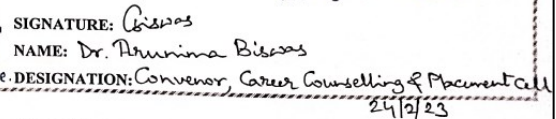 SIGNATURE: Biswas
NAME: Dr. Arunima Biswas
e. DESIGNATION: Convenor, Career Counselling & Placement Cell
24/2/23